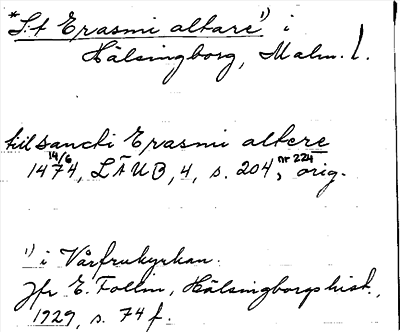 *S:t Erasmi altare 1) i
Hälsingborg, Malm. l.
till sancti Erasmi altere
14/6 1474, LÄUB, 4, s. 204, nr 224 orig.
1) i Vårfrukyrkan.
Jfr E. Follin, Hälsingborgs hist.,
1929, s. 74 f.